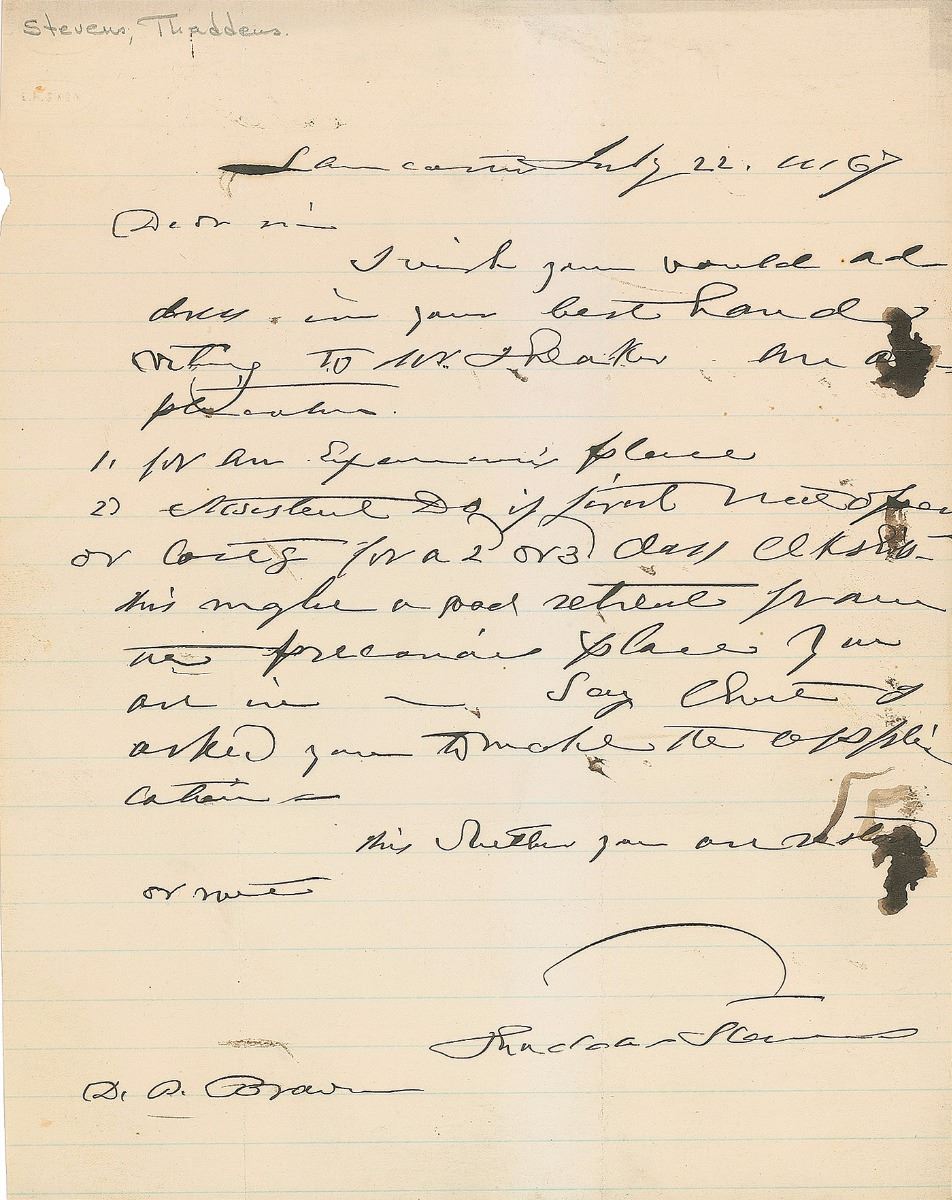 Stevens, Thaddeus.
Lancaster July 22. 1867
Dear sir
I wish you would ad
dress in your best hand
writing to Mr. an ap
plication.
1. for an Examiner's place
2) Assistant Do if first not open
or lastly for a 2 or 3 class Clkship
this might a good retreat from
the precarious place you
are in — Say that I
asked you to make the appli
cation —
this whether you are
or not
Thaddeus Stevens
D. Brown